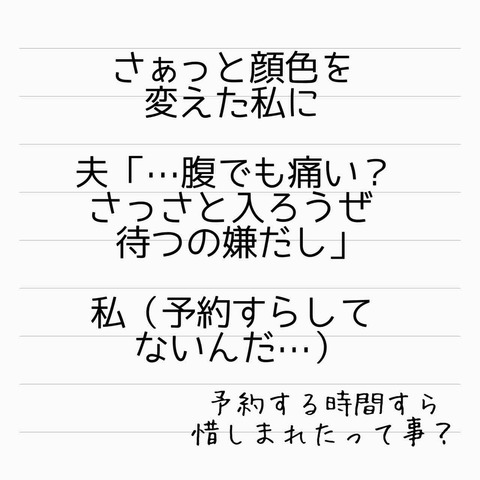 さぁっと顔色を
変えた私に
夫「…腹でも痛い？
さっさと入ろうぜ
待つの嫌だし」
私（予約すらして
ないんだ…）
予約する時間すら
惜しまれたって事？